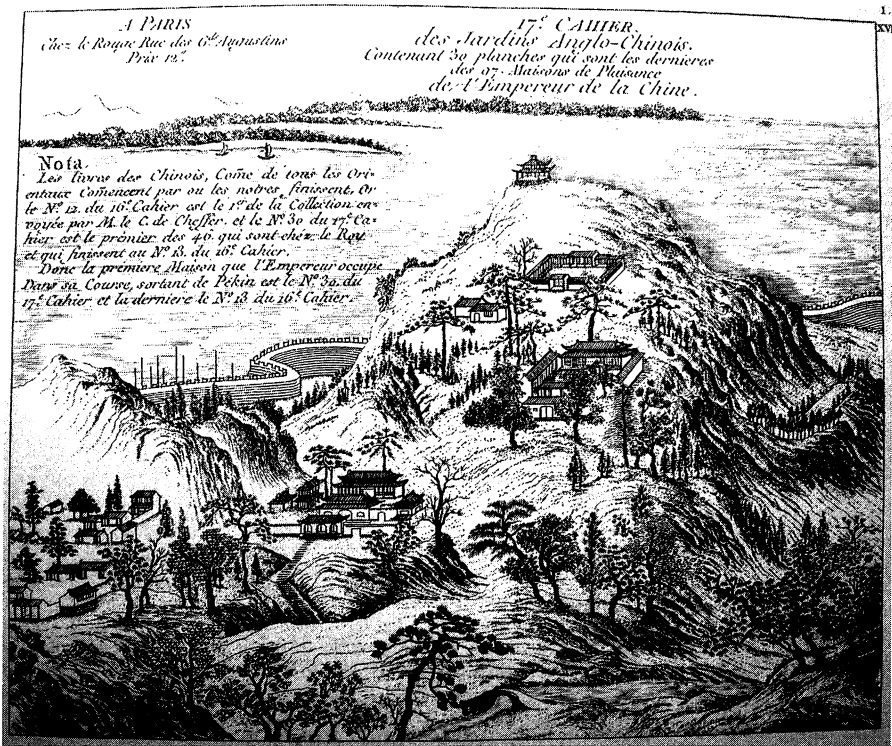 A PARIS
Chez le Rouge Rue des Gds. Augustins
Prix 12#
17e. CAHIER.
des Jardins Anglo-Chinois.
Contenant 30 planches qui sont les dernieres
des 97. Maisons de Plaisance
de l'Empereur de la Chine.
1.
XVII
Nota.
Les livres des Chinois, Come de tous les Ori-
entaux Comencent par ou les notres finissent, Or
le No. 12. du 16e. Cahier est le 1er. de la Collection en-
voyée par M. le C. de Cheffer. et le No. 30 du 17e. Ca-
hier est le prémier des 40. qui sont chéz le Roy
et qui finissent au No. 13. du 16e. Cahier.
Donc la premiere Maison que l'Empereur occupe
Dans sa Course, sortant de Pékin est le No. 30. du
17e. Cahier et la derniere le No. 13 du 16e. Cahier.